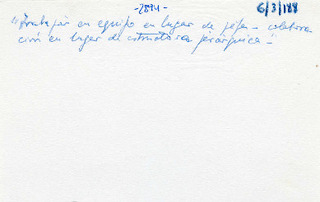 -2894-
6/3/188
"Trabajar en equipo en lugar de jefa - colabora
ción en lugar de estructura jerárquica -"